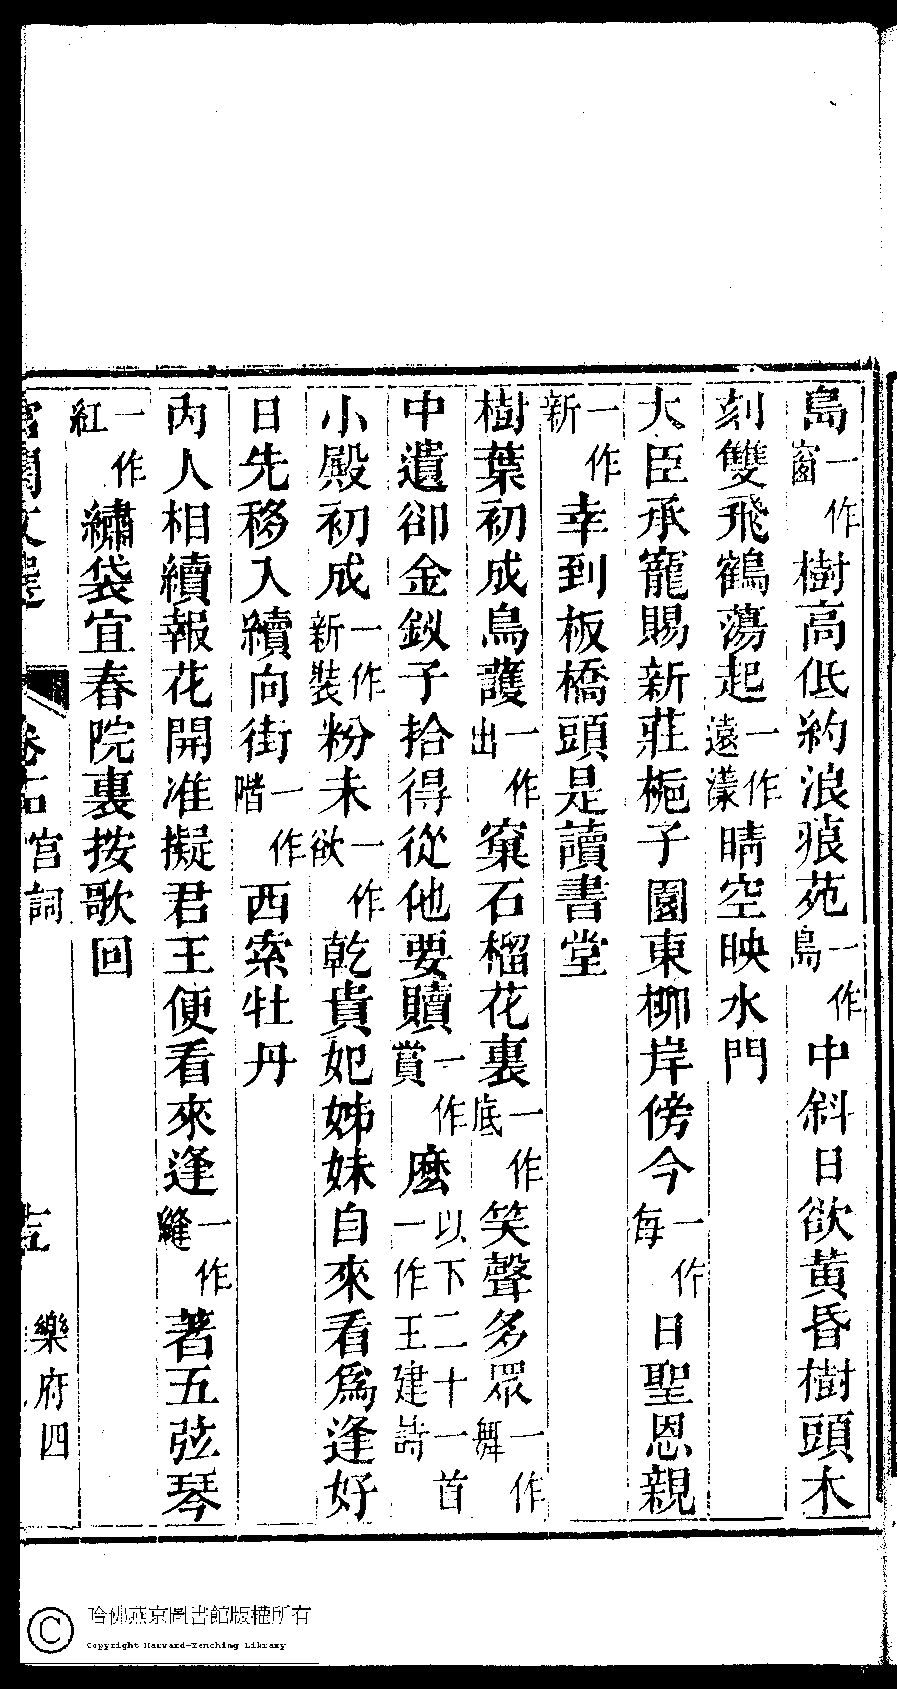 島一作窗樹高低約浪痕苑一作島中斜日欲黄昏樹頭木
刻雙飛鶴蕩起一作遠漾晴空映水門
大臣承寵賜新莊梔子園東柳岸傍今一作每日聖恩親
一作新幸到板橋頭是讀書堂
樹葉初成鳥護一作出窠石榴花裏一作底笑聲多眾一作舞
中遺卻金釵子拾得從他要贖一作賞麽以下二十一首一作王建詩
小殿初成一作新裝粉未一作欲乾貴妃姊妹自來看爲逢好
日先移入續向街一作階西索牡丹
内人相續報花開准擬君王便看來逢一作縫著五弦琴
一作紅繡袋宜春院裏按歌回
宮閨文選 卷十 宮詞 樂府四
哈佛燕京圖書館版權所有
Copyright Harvard-Yenching Library